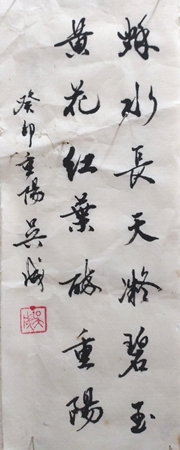 秋水長天凝碧玉
黃花红葉酬重陽
癸卯重陽吳斌